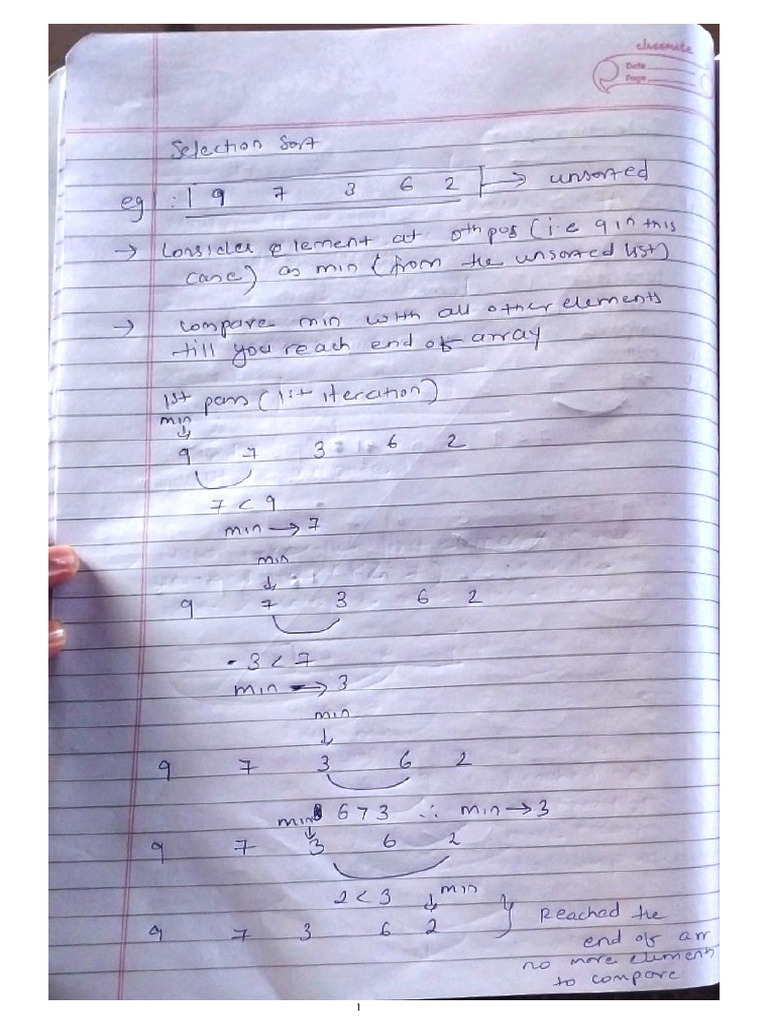 classmate
Date
Page
Selection Sort
eg : 9 7 3 6 2 → unsorted
→ Consider element at 0th pos (i.e 9 in this
case) as min (from the unsorted list)
→ compare min with all other elements
till you reach end of array
1st pass (1st iteration)
min
↓
9 7 3 6 2
7 < 9
min → 7
min
↓
9 7 3 6 2
3 < 7
min → 3
min
↓
9 7 3 6 2
6 > 3 ∴ min → 3
min
↓
9 7 3 6 2
2 < 3 ↓ min
9 7 3 6 2 } Reached the
end of arr
no more elements
to compare
1